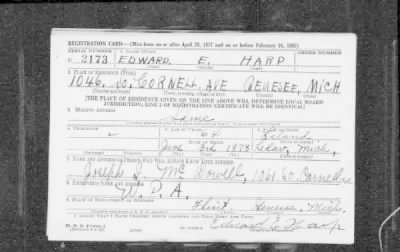 REGISTRATION CARD—(Men born on or after April 28, 1877 and on or before February 16, 1897)
SERIAL NUMBER 1. NAME (Print) ORDER NUMBER
U 2173 EDWARD. E. HARP
2. PLACE OF RESIDENCE (Print)
1046, So, CORNELL, AVE GENESEE, MICH
[THE PLACE OF RESIDENCE GIVEN ON THE LINE ABOVE WILL DETERMINE LOCAL BOARD
JURISDICTION; LINE 2 OF REGISTRATION CERTIFICATE WILL BE IDENTICAL]
3. MAILING ADDRESS
Same
4. TELEPHONE 5. AGE IN YEARS 6. PLACE OF BIRTH
64
DATE OF BIRTH
June 3rd 1878 Mich,
7. NAME AND ADDRESS OF PERSON WHO WILL ALWAYS KNOW YOUR ADDRESS
Joseph Mc 1061 So. Cornell
8. EMPLOYER'S NAME AND ADDRESS
W. P. A.
9. PLACE OF EMPLOYMENT OR BUSINESS
Flint, Genesee, Mich,
I AFFIRM THAT I HAVE VERIFIED ABOVE ANSWERS AND THAT THEY ARE TRUE.
D. S. S. Form 1 Edward E. Harp